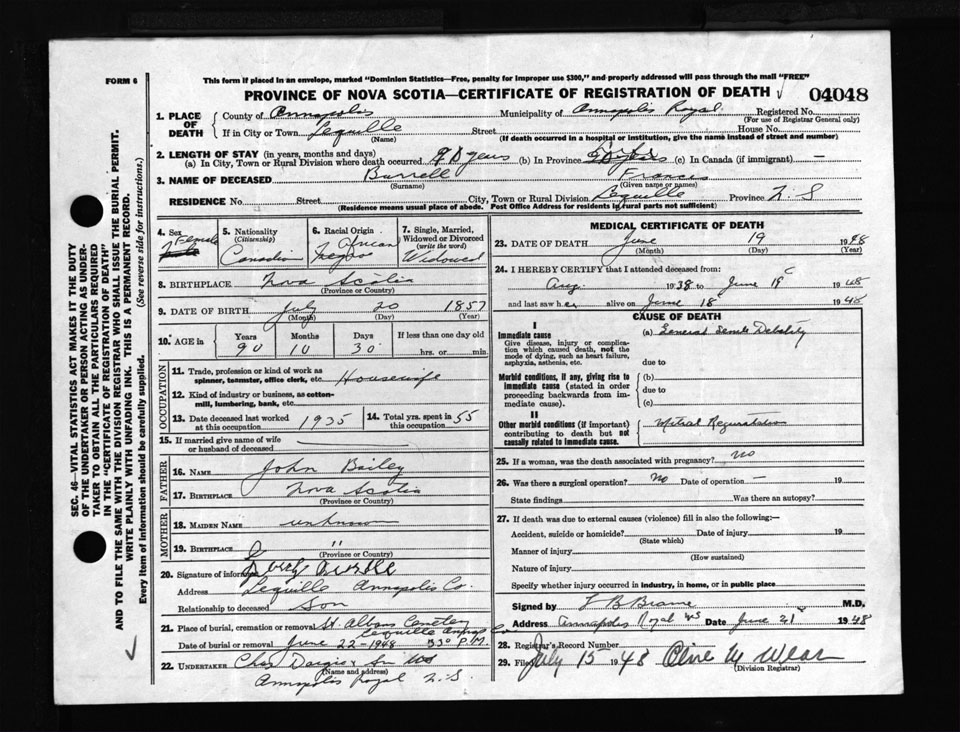 FORM 6
This form if placed in an envelope, marked "Dominion Statistics—Free, penalty for improper use $300," and properly addressed will pass through the mail "FREE"
PROVINCE OF NOVA SCOTIA—CERTIFICATE OF REGISTRATION OF DEATH 04048
1. PLACE OF DEATH
County of Annapolis Municipality of Annapolis Royal Registered No.
(For use of Registrar General only)
If in City or Town Lequille Street House No.
(Name) (If death occurred in a hospital or institution, give the name instead of street and number)
2. LENGTH OF STAY (in years, months and days)
(a) In City, Town or Rural Division where death occurred years (b) In Province (c) In Canada (if immigrant) —
3. NAME OF DECEASED Burrell Francis
(Surname) (Given name or names)
RESIDENCE No. Street City, Town or Rural Division Lequille Province N.S
(Residence means usual place of abode. Post Office Address for residents in rural parts not sufficient)
4. Sex Female
5. Nationality (Citizenship) Canadian
6. Racial Origin African Negro
7. Single, Married, Widowed or Divorced (write the word) Widowed
8. BIRTHPLACE Nova Scotia
(Province or Country)
9. DATE OF BIRTH July 20 1857
(Month) (Day) (Year)
10. AGE in Years Months Days If less than one day old
90 10 30 hrs. or min.
OCCUPATION
11. Trade, profession or kind of work as spinner, teamster, office clerk, etc. Housewife
12. Kind of industry or business, as cotton-mill, lumbering, bank, etc.
13. Date deceased last worked at this occupation 1935
14. Total yrs. spent in this occupation 55
15. If married give name of wife or husband of deceased
FATHER
16. NAME John Bailey
17. BIRTHPLACE Nova Scotia
(Province or Country)
MOTHER
18. MAIDEN NAME unknown
19. BIRTHPLACE "
(Province or Country)
20. Signature of informant
Address Lequille Annapolis Co.
Relationship to deceased Son
21. Place of burial, cremation or removal St. Albans Cemetery
Lequille Annap Co
Date of burial or removal June 22-1948 P.M.
22. UNDERTAKER Chas Dargie & Son
(Name and address)
Annapolis Royal N.S.
MEDICAL CERTIFICATE OF DEATH
23. DATE OF DEATH June 19 1948
(Month) (Day) (Year)
24. I HEREBY CERTIFY that I attended deceased from:
Aug. 1938 to June 19 1948
and last saw her alive on June 18 1948
CAUSE OF DEATH
I
Immediate cause
Give disease, injury or complication which caused death, not the mode of dying, such as heart failure, asphyxia, asthenia, etc.
(a) General Senile Debility
due to
Morbid conditions, if any, giving rise to immediate cause (stated in order proceeding backwards from immediate cause).
(b)
due to
(c)
II
Other morbid conditions (if important) contributing to death but not causally related to immediate cause.
Mitral Regurgitation
25. If a woman, was the death associated with pregnancy? no
26. Was there a surgical operation? no Date of operation — 19
State findings Was there an autopsy?
27. If death was due to external causes (violence) fill in also the following:—
Accident, suicide or homicide? Date of injury 19
(State which)
Manner of injury
(How sustained)
Nature of injury
Specify whether injury occurred in industry, in home, or in public place
Signed by M.D.
Address Annapolis Royal NS Date June 21 1948
28. Registrar's Record Number
29. Filed July 15 1948
(Division Registrar)
SEC. 46—VITAL STATISTICS ACT MAKES IT THE DUTY
OF THE UNDERTAKER OR PERSON ACTING AS UNDER-
TAKER TO OBTAIN ALL THE PARTICULARS REQUIRED
IN THE "CERTIFICATE OF REGISTRATION OF DEATH"
AND TO FILE THE SAME WITH THE DIVISION REGISTRAR WHO SHALL ISSUE THE BURIAL PERMIT.
WRITE PLAINLY WITH UNFADING INK. THIS IS A PERMANENT RECORD.
Every item of information should be carefully supplied. (See reverse side for instructions.)